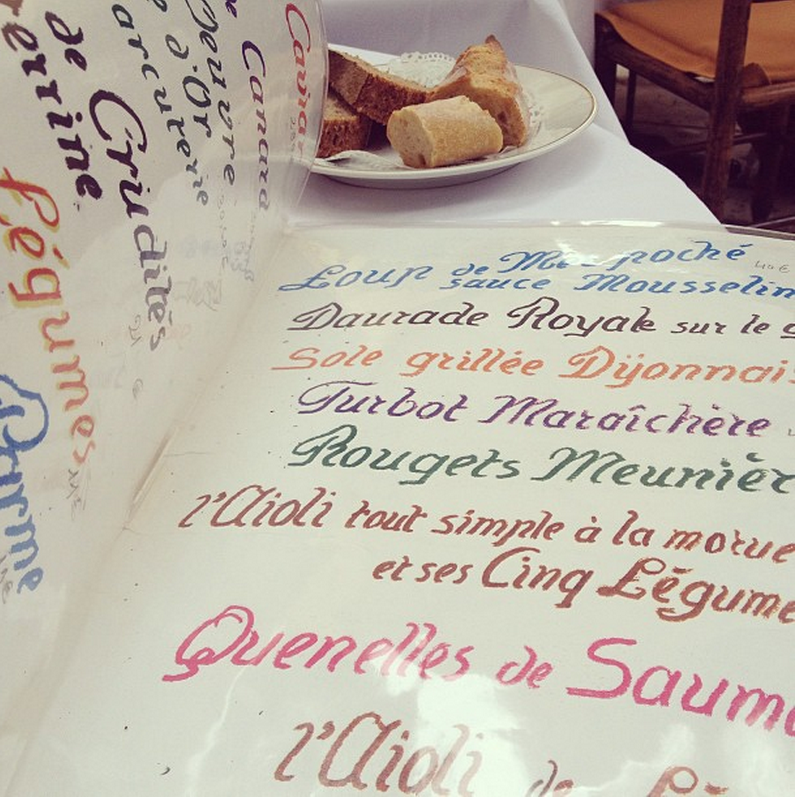 Caviar
Canard
d'Or
de Crudités
Légumes
Loup de Mer poché
sauce Mousselin
Daurade Royale sur le g
Sole grillée Dijonnais
Turbot Maraîchère
Rougets Meunièr
l'Aïoli tout simple à la morue
et ses Cinq Légume
Quenelles de Saumo
l'Aïoli de Lé